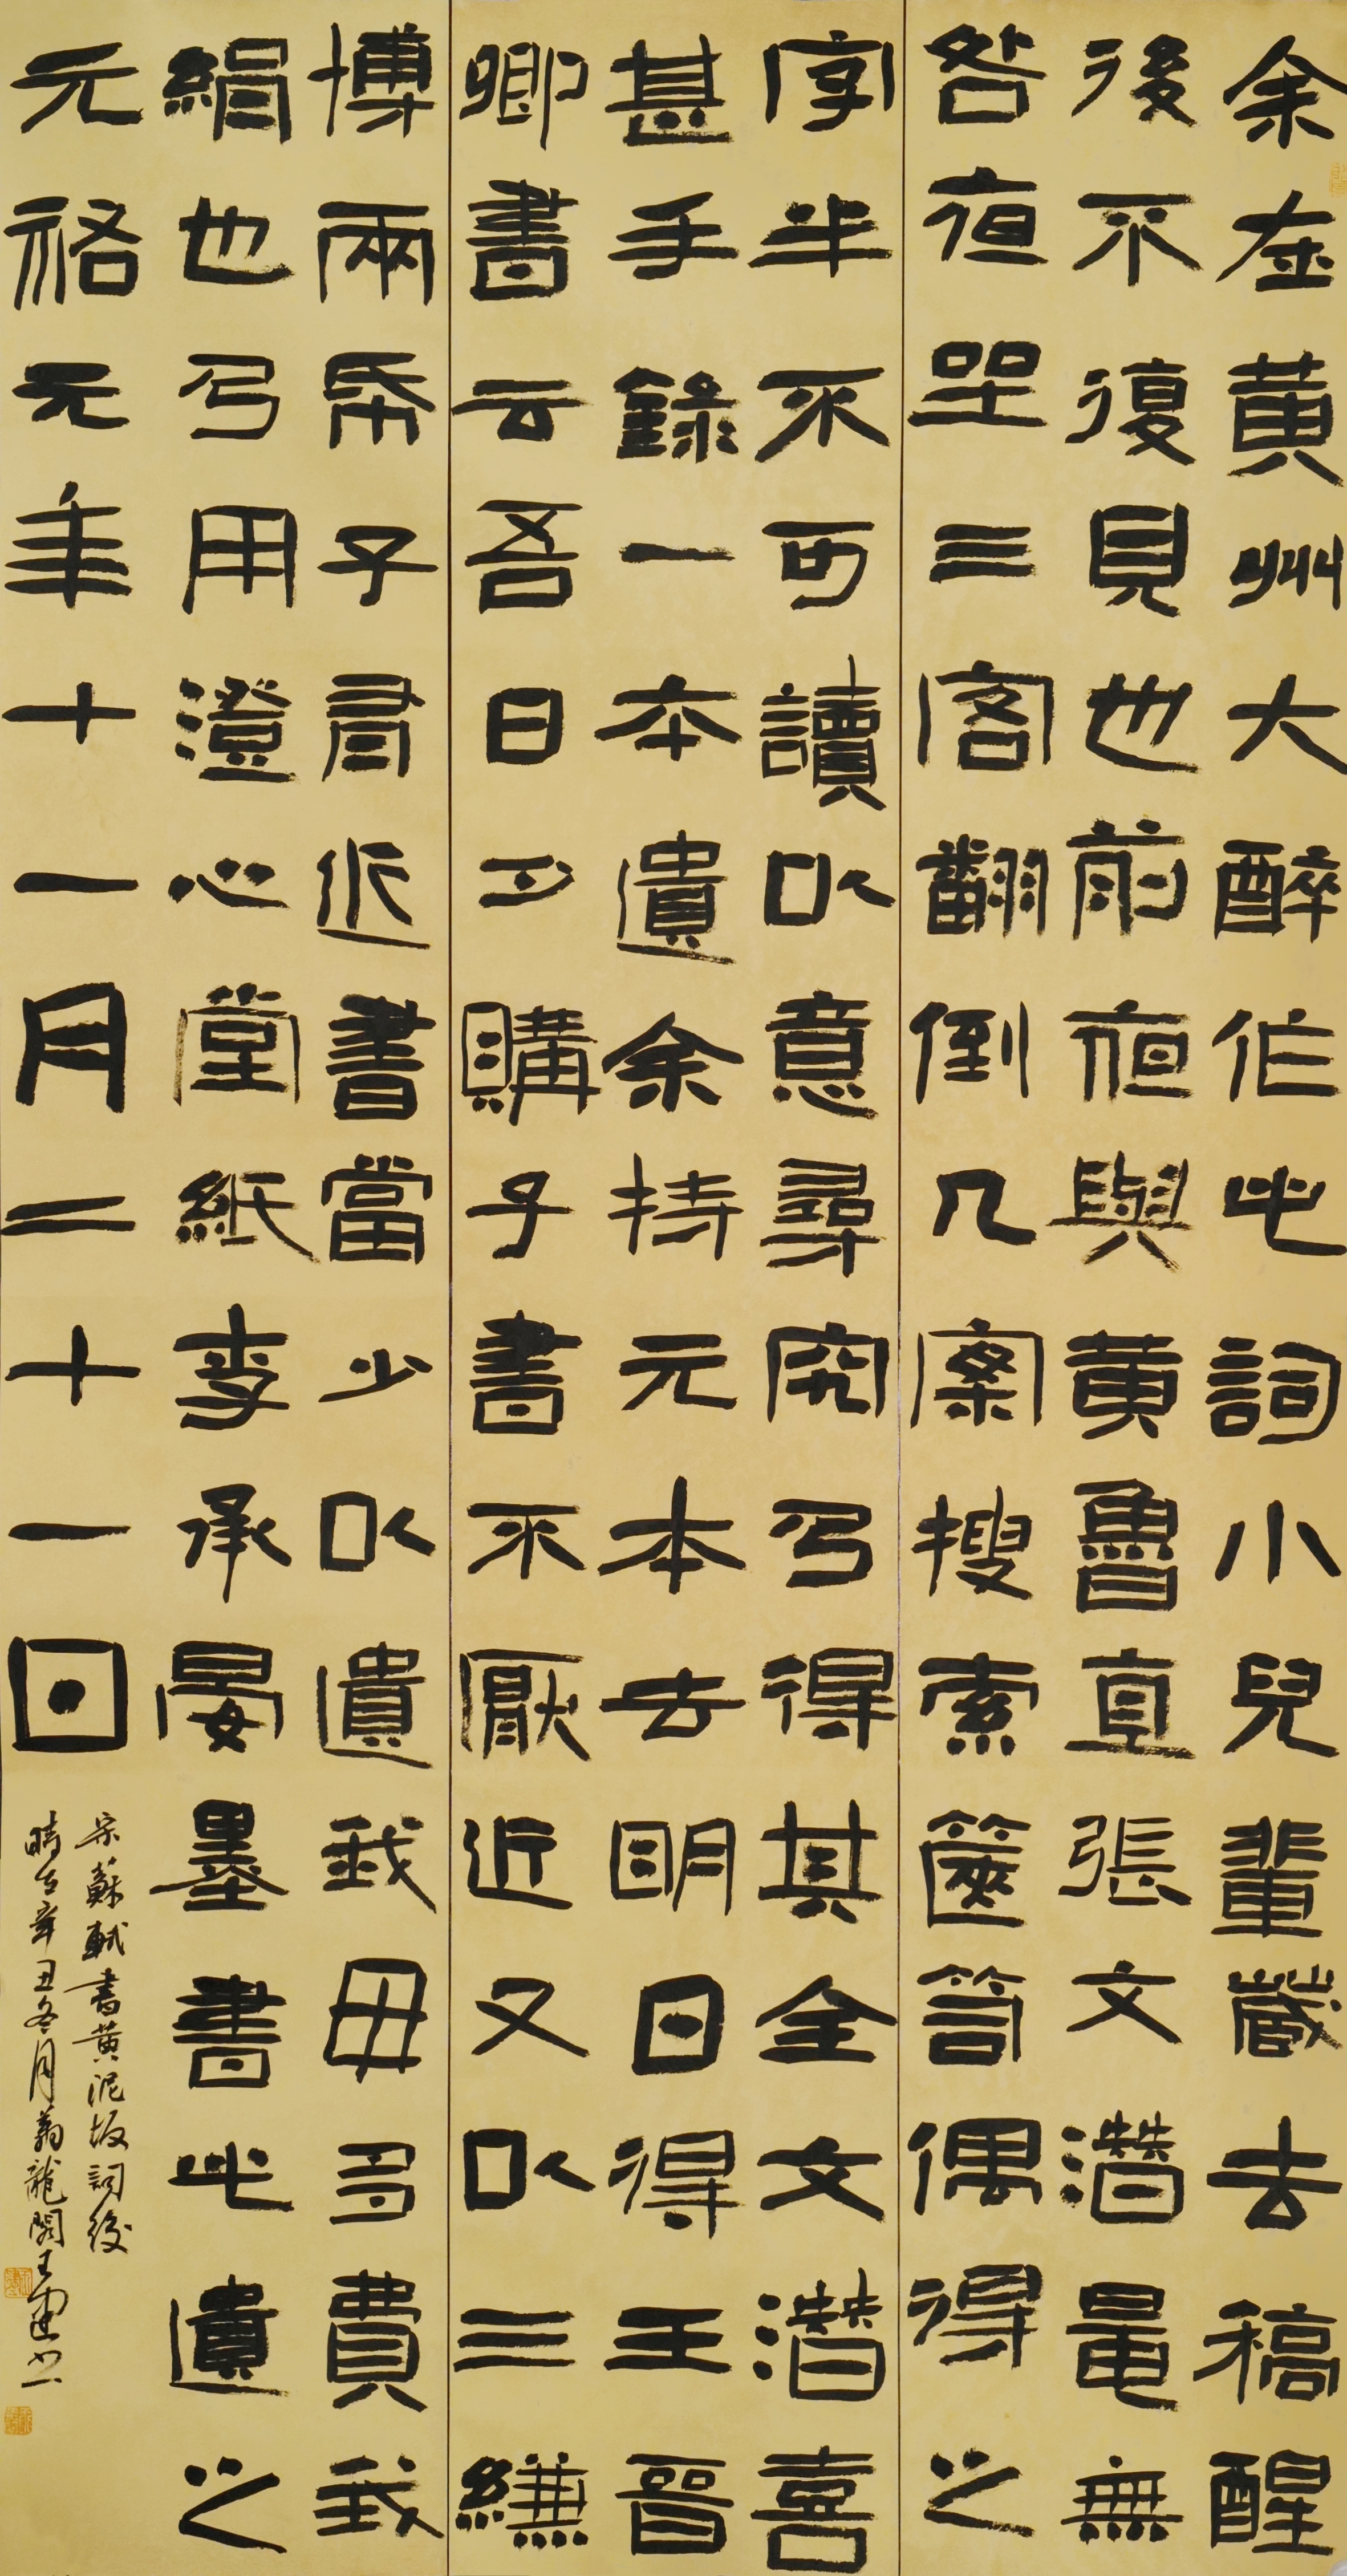 余在黄州大醉作此詞小兒輩藏去稿醒
後不復見也前夜與黄魯直張文潛鼂無
咎夜坐三客翻倒几案搜索篋笥偶得之
字半不可讀以意尋究乃得其全文潛喜
甚手錄一本遺余持元本去明日得王晉
卿書云吾日夕購子書不厭近又以三縑
博兩帋子有近書當少以遺我毋多費我
絹也乃用澄心堂紙李承晏墨書此遺之
元祐元年十一月二十一日
宋蘇軾書黄泥坂詞後
時在辛丑冬月龍閣王